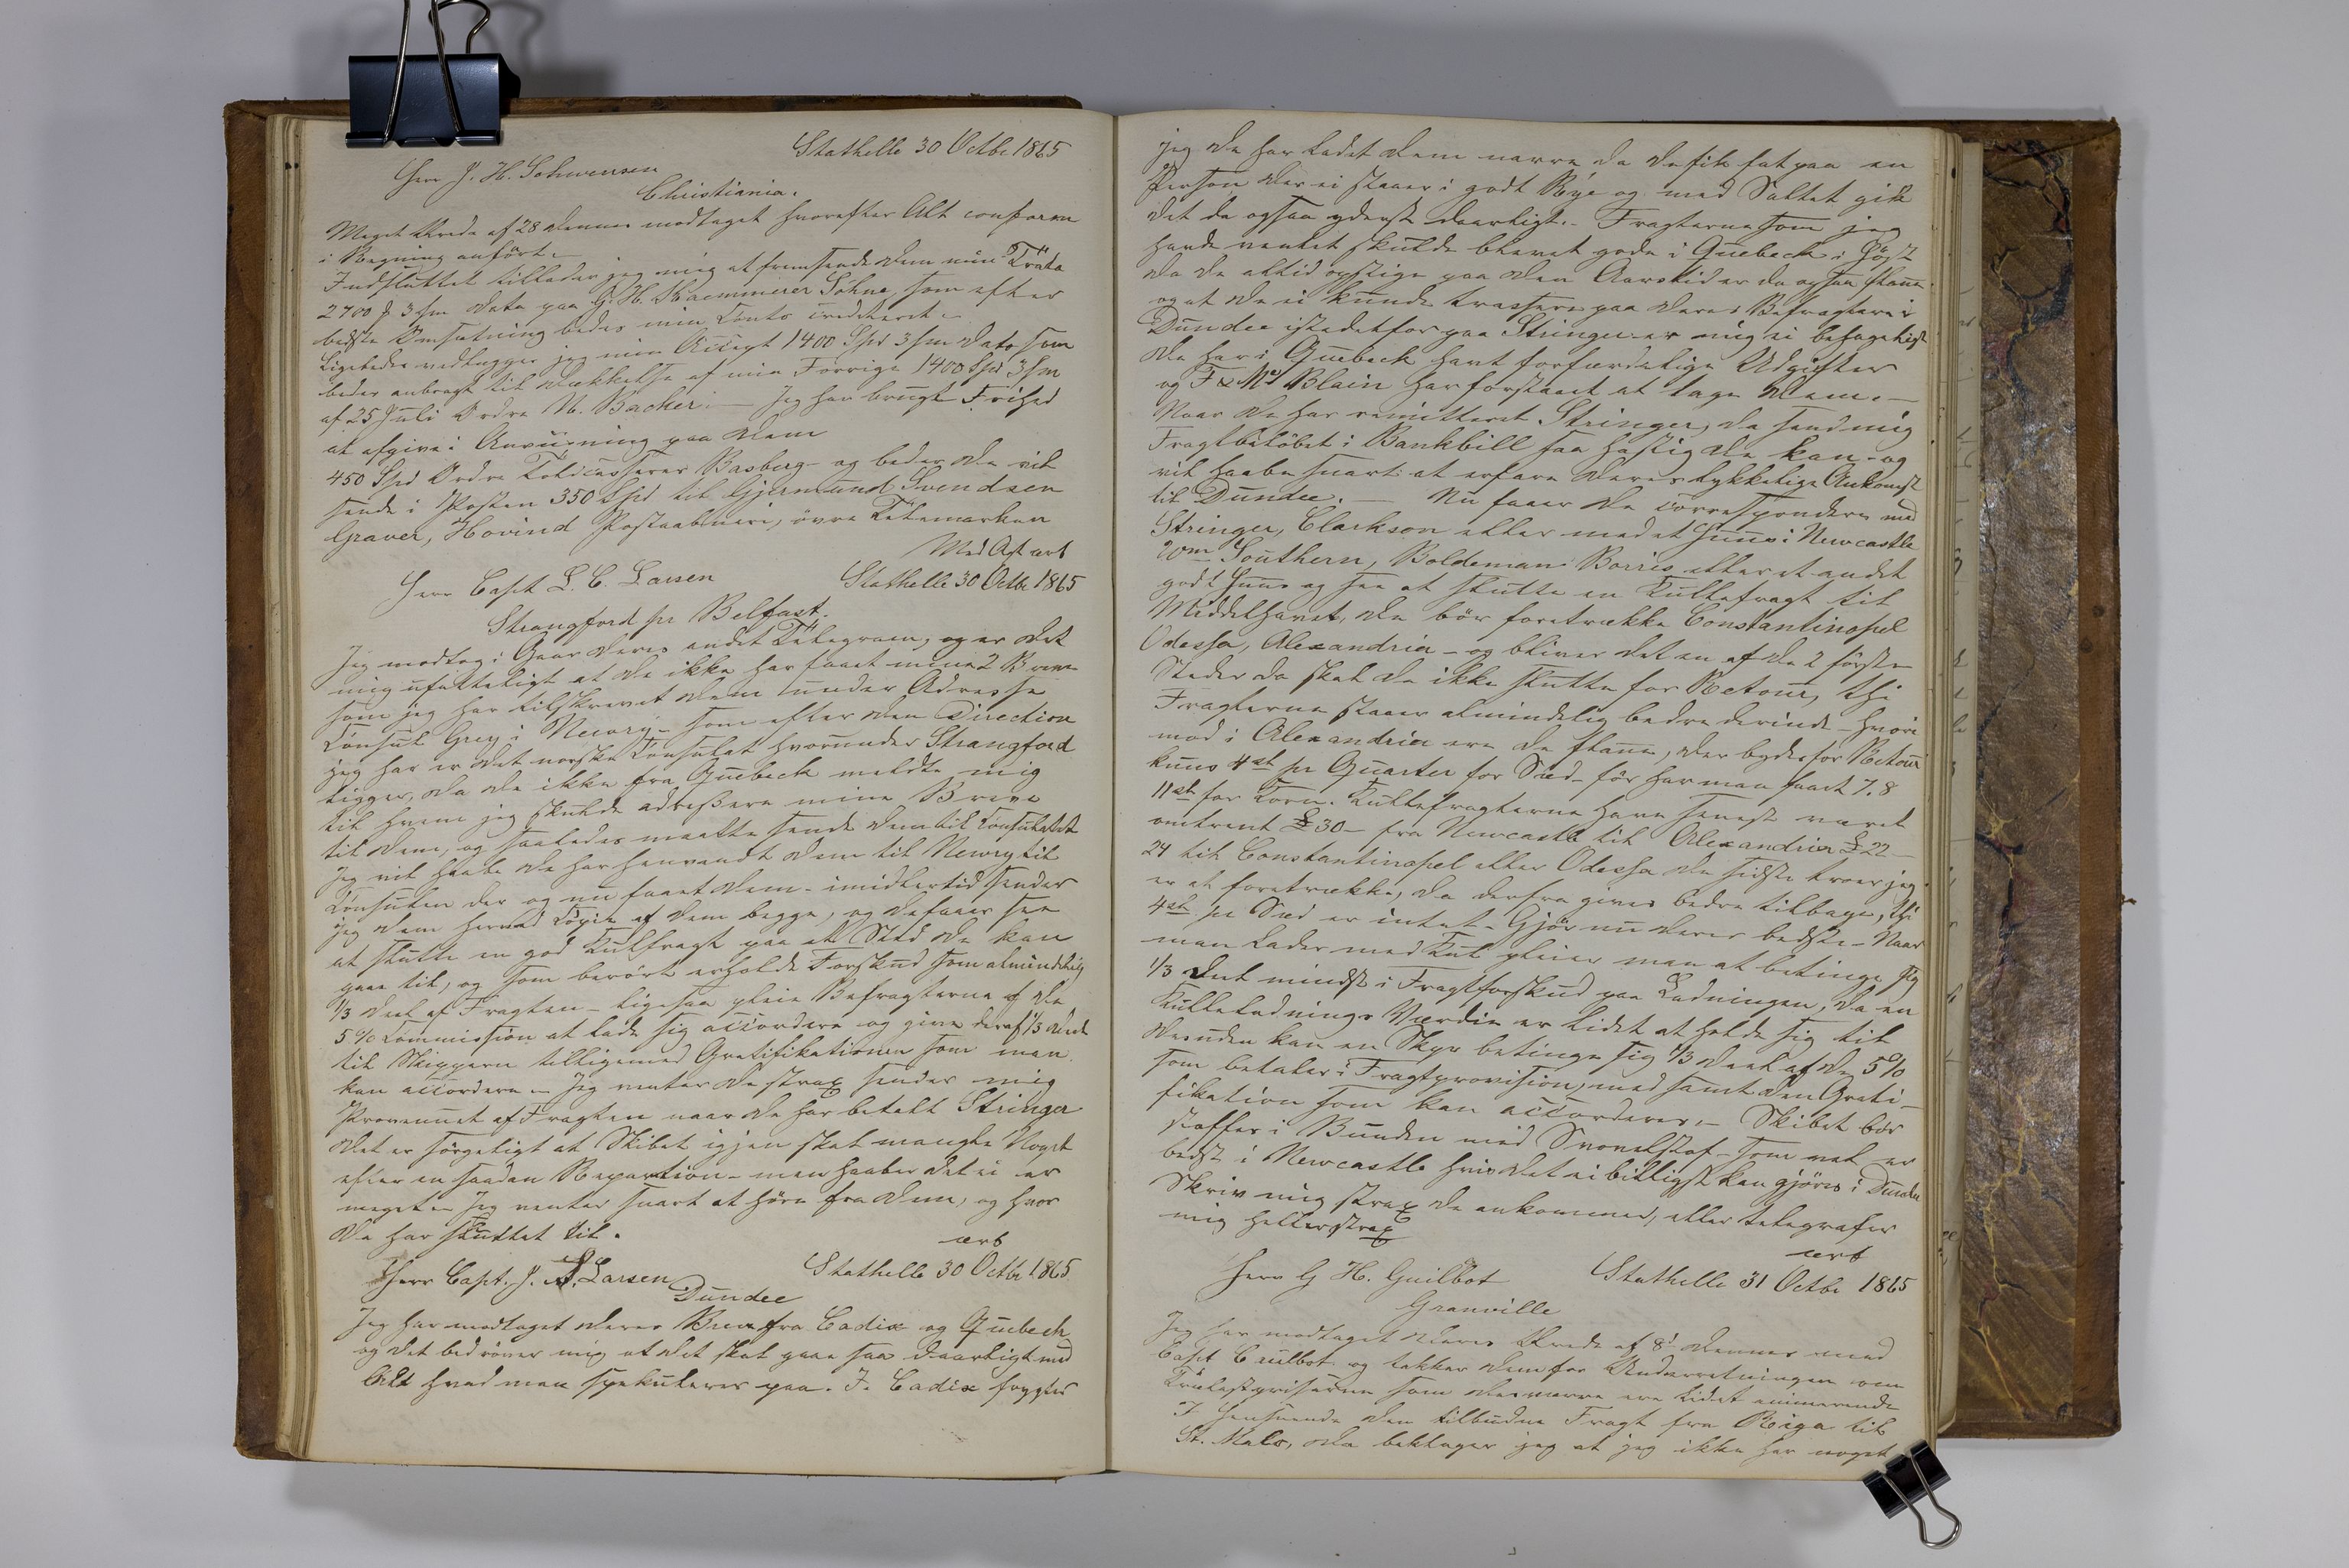 Stathelle 30 Octbr 1865
Herr J. H. Schwensen
Christiania.
Meget Ærede af 28 dennes modtaget hvorefter Alt conform
i Regning anført.
Indsluttet tillader jeg mig at fremsende Dem min Tratta
2700 ƒ 3/m dato paa G. H. Kaemmerer Söhne, som efter
bedste Omsætning bedes min Conto crediteret.
Ligeledes vedlægger jeg min Accept 1400 Spd 3/m dato som
bedes anbragt til Dækkelse af min Forrige 1400 Spd 3/m
af 25 Juli Ordre N. Backer. — Jeg har brugt Frihed
at afgive Anviisning paa Dem
450 Spd Ordre Toldcasserer Basberg – og beder De vil
sende i Posten 350 Spd til Gjermund Svendsen
Graver, Hovind Postaabneri, övre Tellemarken
Med Agt
Stathelle 30 Octbr 1865
Herr Capt L. C. Larsen
Strangford pr Belfast.
Jeg modtog i Gaar Deres andet Telegram, og er det
mig ufatteligt at De ikke har faaet mine 2 Breve
som jeg har tilskrevet Dem under Adresse
Consul Grey i Newry – som efter den Direction
jeg har er det norske Consulat hvorunder Strangford
ligger, da De ikke fra Quebeck meldte mig
til hvem jeg skulde adressere mine Breve
til Dem, og saaledes maatte sende dem til Consulatet
Jeg vil haabe De har henvendt Dem til Newry til
Consulen der og nu faaet dem – imidlertid sender
jeg Dem herved Copie af dem begge, og De faaer see
at slutte en god Kulfragt paa et Sted De kan
gaae til, og som berört erholde Forskud som almindelig
1/3 Deel af Fragten – ligesaa pleie Befragterne af de
5% Commission at lade sig accordere og give deraf 1/3 Deel
til Skipperen tilligemed Gratifikationen som man
kan accordere – Jeg venter De strax sender mig
Provenuet af Fragten naar De har betalt Stringer
Det er sörgeligt at Skibet igjen skal mangle Noget
efter en saadan Reparation – men haaber det ei er
meget – Jeg venter snart at höre fra Dem, og hvor
De har sluttet til.
ærb
Stathelle 30 Octbr 1865
Herr Capt. J. A. Larsen
Dundee
Jeg har modtaget Deres Breve fra Cadix og Quebeck
og det bedröver mig at det skal gaae saa daarligt med
Alt hvad man spekulerer paa. I Cadix frygter
jeg De har ladet Dem narre da De fik fat paa en
Person der ei staaer i godt Rye og med Saltet gik
det da ogsaa yderst daarligt. – Fragterne som jeg
havde ventet skulde blevet gode i Quebeck i Höst
da de altid opstige paa den Aarstid er da ogsaa flaue
og at De ei kunde trassere paa Deres Befragtere i
Dundee istedetfor paa Stringer er mig ei behageligt
De har i Quebeck havt forfærdelige Udgifter
og F & Mc Blain har forstaaet at tage Dem. –
Naar De har remitteret Stringer, da send mig
Fragtbelöbet i Bankbill saa hastig De kan – og
vil haabe snart at erfare Deres lykkelige Ankomst
til Dundee. — Nu faaer De correspondere med
Stringer, Clarkson eller med et Huus i Newcastle
Wm Southern, Boldeman Borries eller et andet
godt Huus og see at slutte en Kullefragt til
Middelhavet, De bör foretrække Constantinopel
Odessa, Alexandria – og bliver det en af de 2 förste
Steder da skal De ikke slutte for Retour, thi
Fragterne staaer almindelig bedre derinde – hvori
mod i Alexandria ere de flaue, der bydes for Retour
kuns 4 sh pr Quarter for Sæd – för har man faaet 7. 8
11 sh for Korn. Kullefragterne have senest været
omtrent £ 30 – fra Newcastle til Alexandria £ 22 –
24 til Constantinopel eller Odessa de sidste troer jeg
er at foretrække, da derfra gives bedre tilbage, thi
4 sh pr Sæd er intet. Gjör nu Deres bedste – Naar
man lader med Kul pleier man at betinge sig
1/3 Deel mindst i Fragtforskud paa Ladningen, da en
Kulleladnings Værdie er lidet at holde sig til
desuden kan en Skpr betinge sig 1/3 Deel af de 5%
som betales i Fragtprovision, med samt den Grati-
fikation som kan accorderes, – Skibet bör
staffes i Bunden med Svovelstof – som vel er
bedst i Newcastle hvis det ei billigst kan gjöres i Dundee
Skriv mig strax De ankommer, eller telegrafer
mig heller strax
ærb
Stathelle 31 Octbr 1865
Herr G H. Guilbot
Granville
Jeg har modtaget Deres Ærede af 8d dennes med
Capt Guilbot og takker Dem for Underretningen om
Trælastpriserne som desværre ere lidet animerende
I Henseende den tilbudne Fragt fra Riga til
St. Malo, da beklager jeg at jeg ikke har noget